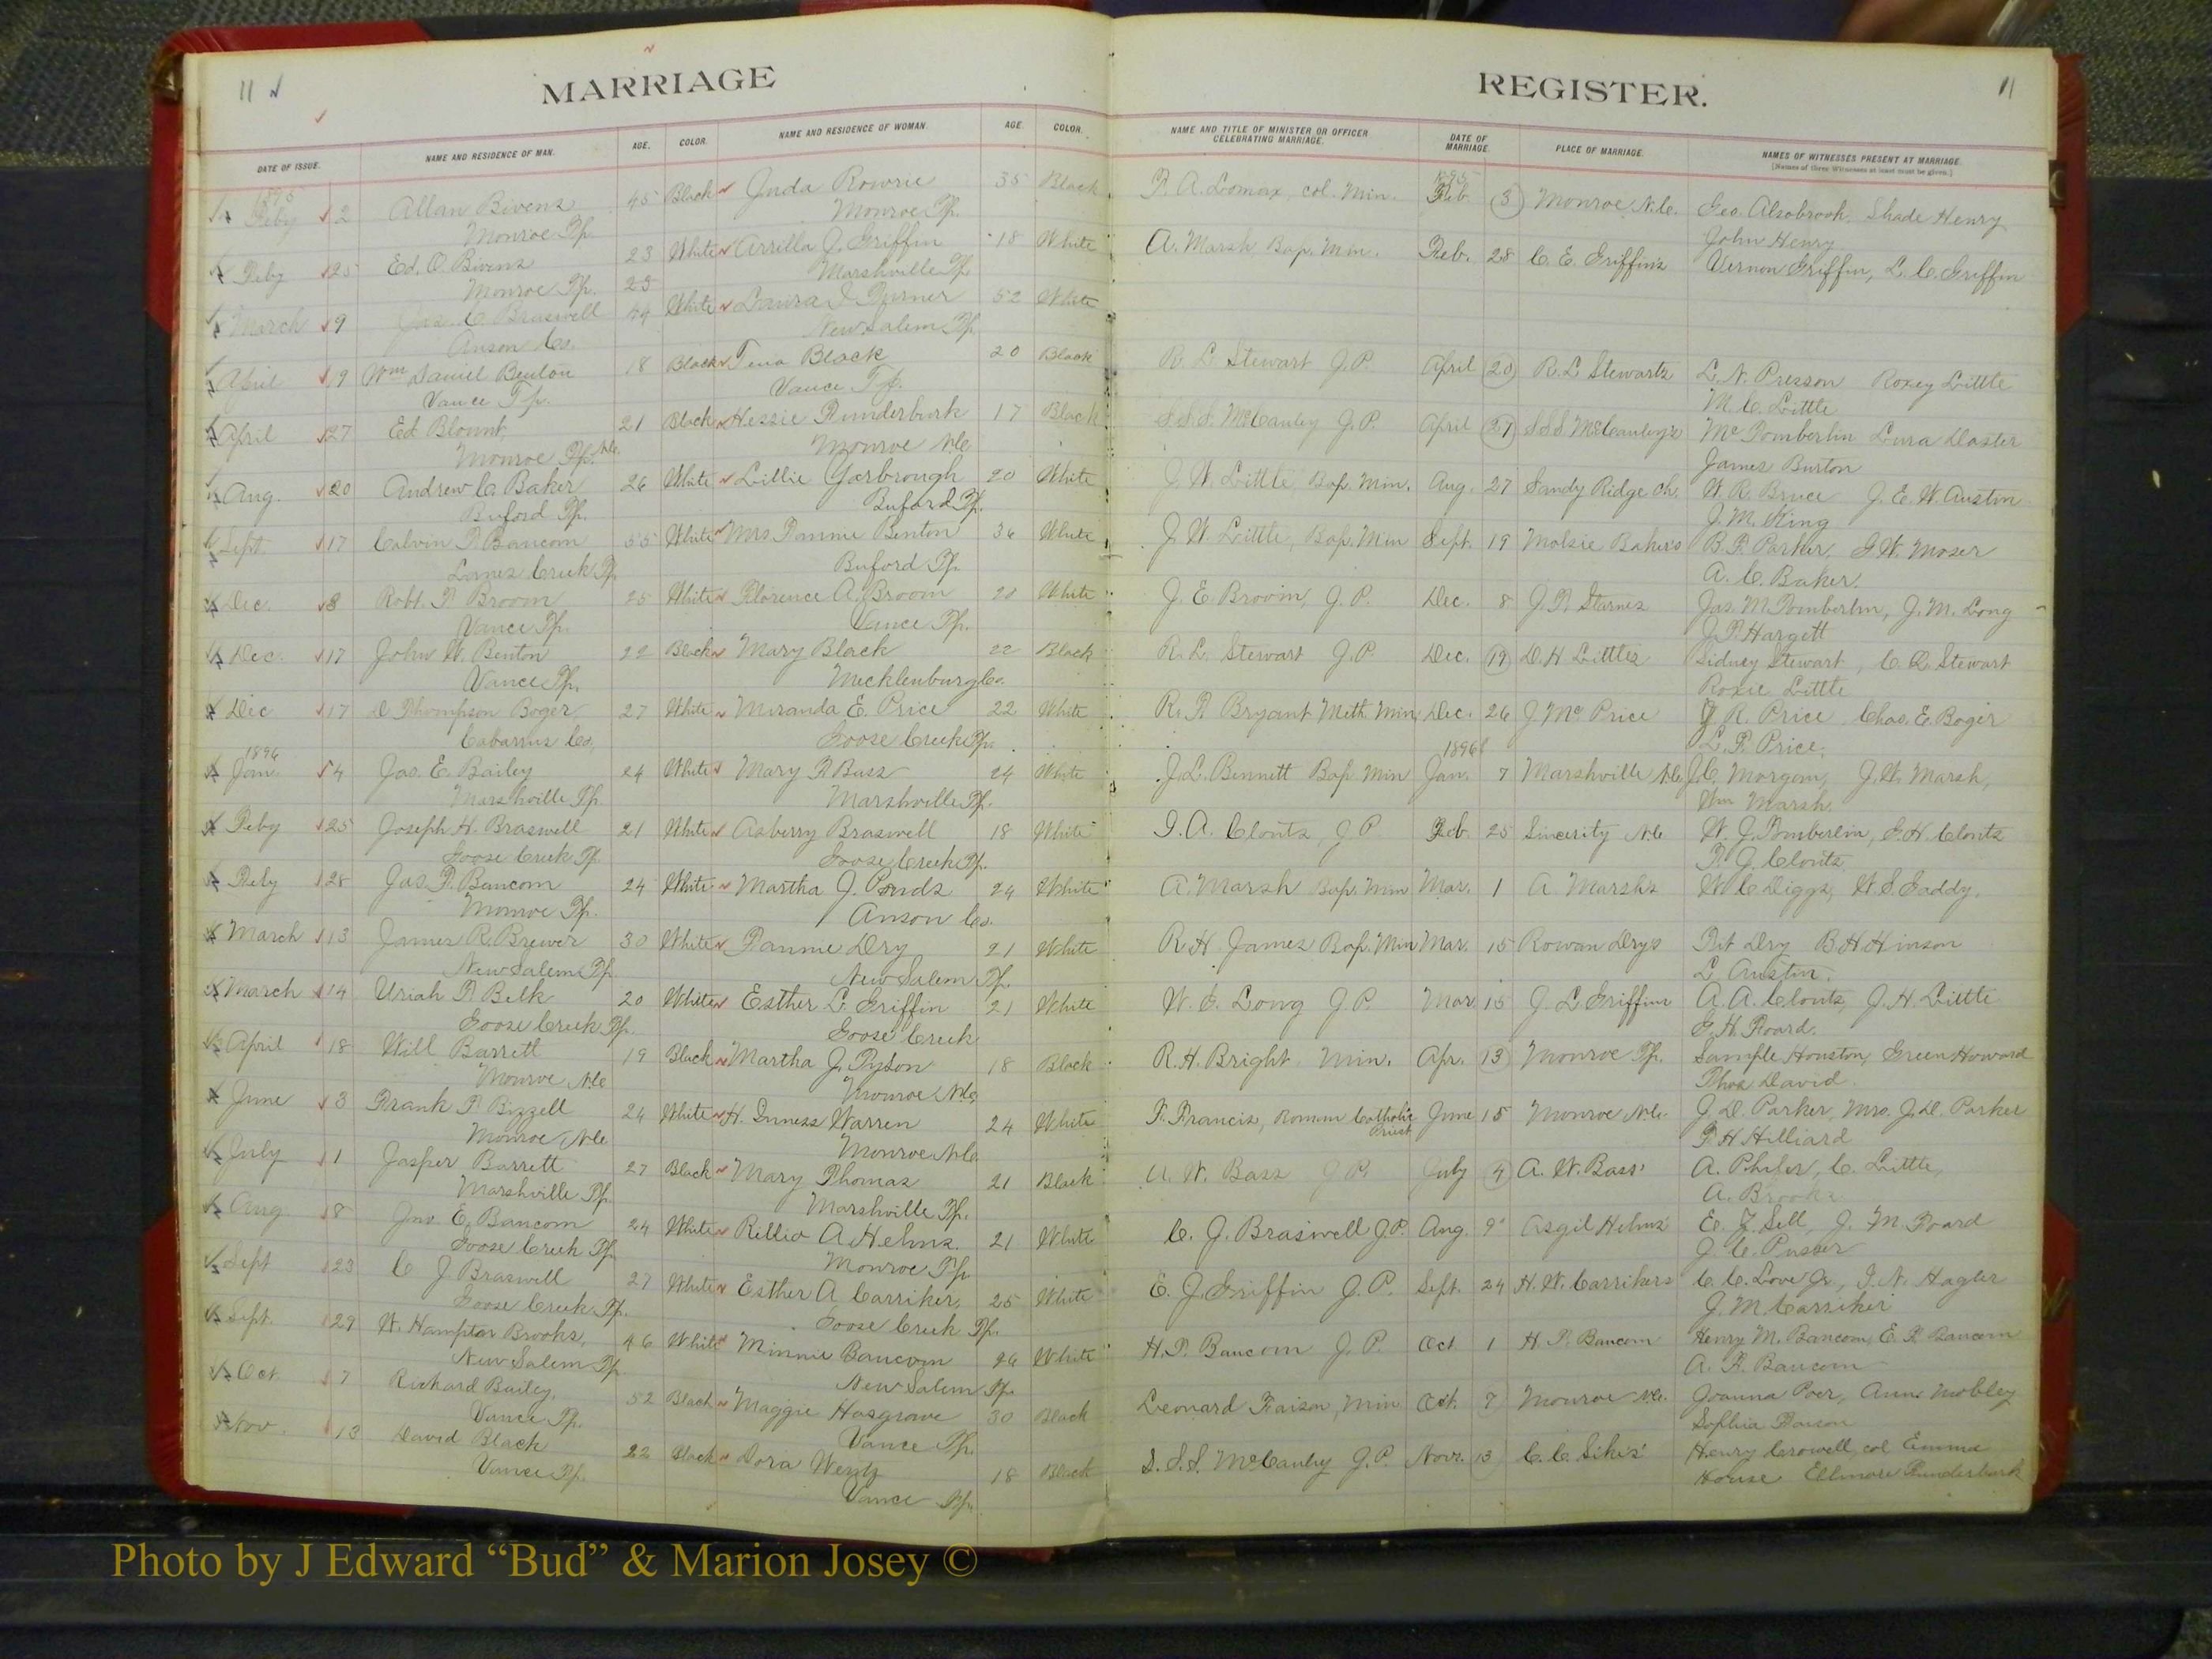 11
MARRIAGE
DATE OF ISSUE. NAME AND RESIDENCE OF MAN. AGE. COLOR. NAME AND RESIDENCE OF WOMAN. AGE. COLOR.
1895
Feby 2 Allan Bivens 45 Black Juda Rowrie 35 Black
Monroe Tp. Monroe Tp.
Feby 25 Ed. O. Bivens 23 White Arrilla J. Griffin 18 White
Monroe Tp. 23 Marshville Tp
March 9 Jas. C. Braswell 44 White Laura J. Turner 52 White
Anson Co. New Salem Tp
April 19 Wm Daniel Benton 18 Black Tena Black 20 Black
Vance Tp. Vance Tp.
April 27 Ed Blount 21 Black Hessie Funderburk 17 Black
Monroe Tp. N.C. Monroe N.C.
Aug. 20 Andrew C. Baker 26 White Lillie Yarbrough 20 White
Buford Tp. Buford Tp.
Sept 17 Calvin F. Baucom 55 White Mrs Fannie Benton 36 White
Lanes Creek Tp Buford Tp.
Dec. 8 Robt. F. Broom 25 White Florence A. Broom 20 White
Vance Tp. Vance Tp.
Dec. 17 John W. Benton 22 Black Mary Black 22 Black
Vance Tp. Mecklenburg Co.
Dec 17 D Thompson Boger 27 White Miranda E. Price 22 White
Cabarrus Co, Goose Creek Tp.
1896
Jan. 4 Jas. E. Bailey 24 White Mary F Bass 24 White
Marshville Tp. Marshville Tp.
Feby 25 Joseph H. Braswell 21 White Asberry Braswell 18 White
Goose Creek Tp. Goose Creek Tp.
Feby 28 Jas. F. Baucom 24 White Martha J. Ponds 24 White
Monroe Tp. Anson Co.
March 13 James R. Brewer 30 White Fannie Dry 21 White
New Salem Tp. New Salem Tp.
March 14 Uriah F. Belk 20 White Esther L. Griffin 21 White
Goose Creek Tp. Goose Creek
April 18 Will Barrett 19 Black Martha J. Tyson 18 Black
Monroe N.C. Monroe N.C.
June 3 Frank F. Bizzell 24 White H. Inness Warren 24 White
Monroe, N.C. Monroe N.C.
July 1 Jasper Barrett 27 Black Mary Thomas 21 Black
Marshville Tp. Marshville Tp.
Aug 8 Jno E. Baucom 24 White Rillio A. Helms. 21 White
Goose Creek Tp. Monroe Tp.
Sept 23 C J Braswell 27 White Esther A Carriker, 25 White
Goose Creek Tp. Goose Creek Tp.
Sept. 29 W. Hampton Brooks, 46 White Minnie Baucom 26 White
New Salem Tp New Salem Tp.
Oct. 7 Richard Bailey, 52 Black Maggie Hasgrove 30 Black
Vance Tp. Vance Tp.
Nov. 13 David Black 22 Black Dora Wentz 18 Black
Vance Tp. Vance Tp.
REGISTER.
11
NAME AND TITLE OF MINISTER OR OFFICER CELEBRATING MARRIAGE. DATE OF MARRIAGE. PLACE OF MARRIAGE. NAMES OF WITNESSES PRESENT AT MARRIAGE.
[Names of three Witnesses at least must be given.]
1895
F. A. Lomax, col. Min. Feb. 3 Monroe N.C. Geo. Alsobrook, Shade Henry
John Henry
A. Marsh Bap. Min. Feb. 28 C. E. Griffin's Vernon Griffin, L. C. Griffin
R. L. Stewart J.P. April 20 R. L Stewarts L. N. Presson Roxey Little
M. C. Little
S.S.S. McCauley J.P. April 27 S.S.S McCauley's Mc Pomberlin Lura Doster
James Burton
J. W. Little, Bap. Min. Aug. 27 Sandy Ridge Ch. W. R. Bruce J. E. W. Austin
J. M. King
J. W. Little, Bap. Min Sept. 19 Malsie Baker's B. F. Parker. G. W. Moser
A. C. Baker.
J. E. Broom, J. P. Dec. 8 J. F. Starnes Jas. M. Pomberlin, J. M. Long
J. P. Hargett
R. L. Stewart J.P. Dec. 19 D. H Littles Sidney Stewart, C. Q. Stewart
Roxie Little
R. F. Bryant Meth. Min. Dec. 26 J Mc Price J R. Price Chas. E. Boger
L. F. Price.
1896
J. L. Bennett Bap. Min Jan. 7 Marshville N.C. J. C. Morgan, J. W. Marsh,
Wm Marsh.
I. A. Clontz, J P. Feb. 25 Sincerity N.C. W. J. Pomberlin, G. H. Clontz
F. J. Clontz
A. Marsh Bap. Min Mar. 1 A. Marsh's W C Diggs, W. S. Gaddy.
R. H. James Bap. Min Mar. 15 Rowan Drys Pit Dry B H Hinson
L. Austin.
W. G. Long J. P. Mar. 15 J. L Griffins A. A. Clontz, J. H. Little
G. H. Foard.
R. H. Bright. Min. Apr. 13 Monroe Tp. Sample Houston, Green Howard
Thos David.
F. Francis, Roman Catholic Priest June 15 Monroe N.C. J. D. Parker, Mrs. J. D. Parker
F. H Hilliard
A. W. Bass J.P. July 4 A. W. Bass' A. Phifer, C. Little,
A. Brooks
C. J. Braswell J.P. Aug. 9 Asgil Helms' E. J. Sell, J. M. Foard
J. C. Pusser
E. J. Griffin J. P. Sept. 24 H. W. Carrikers C. C. Love Jr., J. N. Hagler
J. M. Carriker
H. F. Baucom J. P. Oct. 1 H F. Baucom Henry M. Baucom, E. F. Baucom
A. F. Baucom
Leonard Faison, Min Oct. 7 Monroe N.C. Joanna Poer, Anna Mobley
Sophia Faison
S. S. S. McCauley J. P. Novr. 13 C. C. Sikes' Henry Crowell, col Emma
House Ellmore Funderburk
Photo by J Edward “Bud” & Marion Josey ©